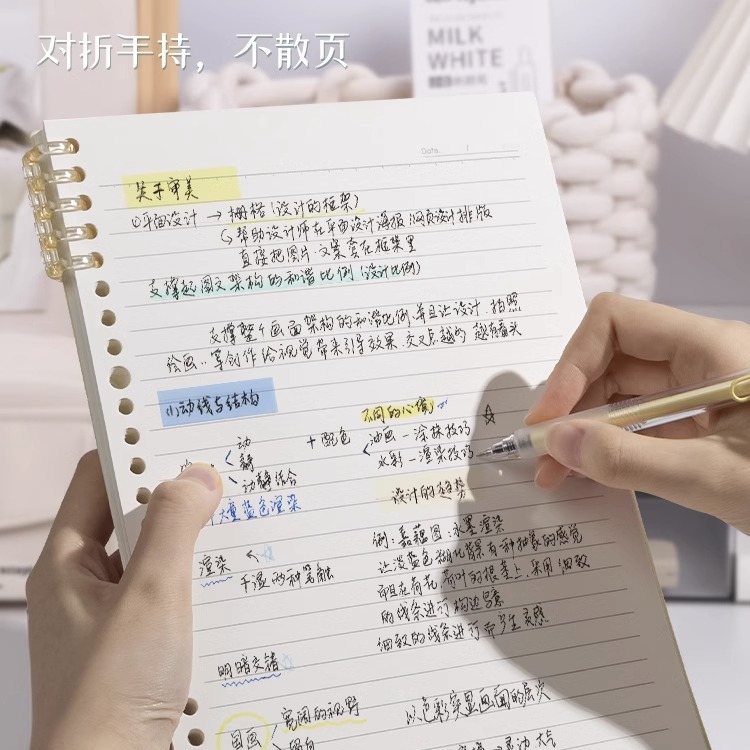 对折手持，不散页
MILK
WHITE
Date.
关于审美
①平面设计 → 栅格（设计的框架）
帮助设计师在平面设计海报、网页设计排版
直接把图片 文案 套在框架里
支撑起图文架构的和谐比例（设计比例）
支撑整个画面架构的和谐比例，并且让设计、拍照
绘画..等创作给视觉带来引导效果，交叉点越多 越有看头
(1)动线与结构
不同的心像
动
静
动静结合
+ 配色
油画 — 涂抹技巧
水彩 — 渲染技巧
大章蓝色渲染
设计的趋势
渲染
干湿两种笔触
例：嘉藕图：水墨渲染
让淡蓝色糊化背景有种抽象的感觉
而且在荷花 荷叶的根茎上，采用细致
的线条进行构边
细致的线条进行而产生灵感
明暗交错
国画
宽阔的视野
留白
以色彩突显画面的层次
灵动大气